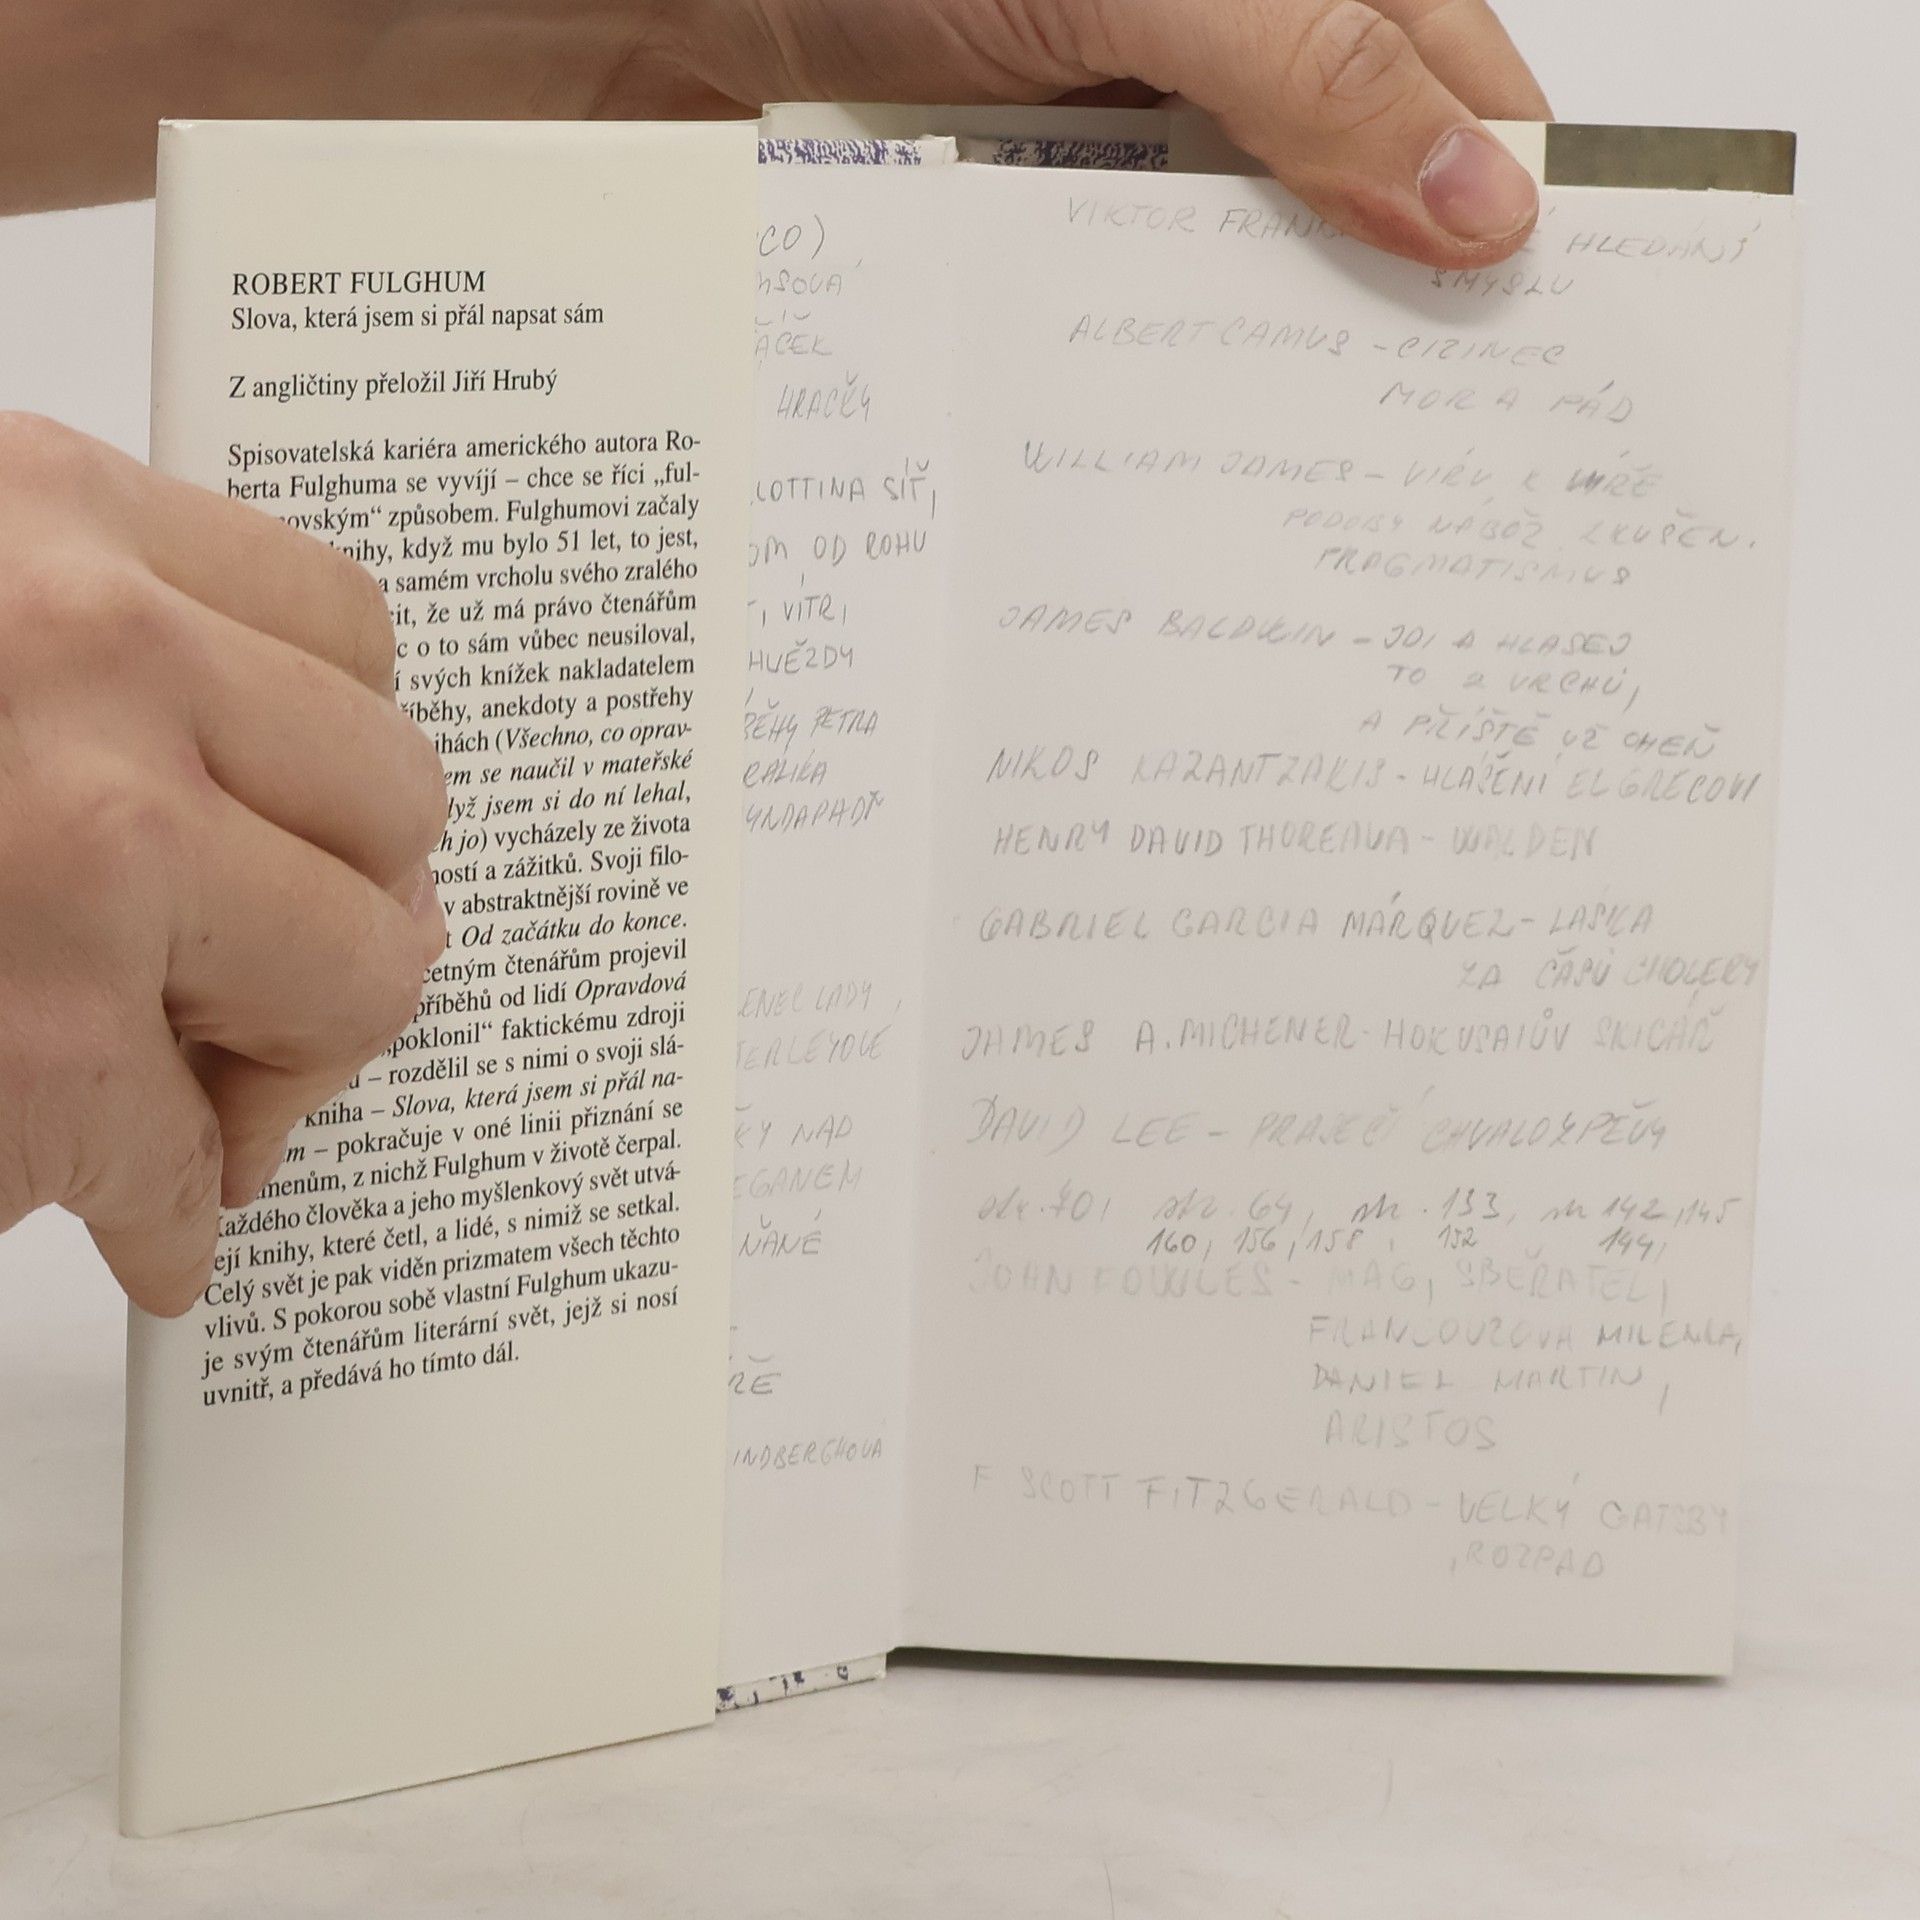 ROBERT FULGHUM
Slova, která jsem si přál napsat sám
Z angličtiny přeložil Jiří Hrubý
Spisovatelská kariéra amerického autora Ro-
berta Fulghuma se vyvíjí – chce se říci „ful-
ovským“ způsobem. Fulghumovi začaly
knihy, když mu bylo 51 let, to jest,
a samém vrcholu svého zralého
cit, že už má právo čtenářům
c o to sám vůbec neusiloval,
í svých knížek nakladatelem
říběhy, anekdoty a postřehy
ihách (Všechno, co oprav-
em se naučil v mateřské
dyž jsem si do ní lehal,
h jo) vycházely ze života
ností a zážitků. Svoji filo-
v abstraktnější rovině ve
t Od začátku do konce.
četným čtenářům projevil
příběhů od lidí Opravdová
„poklonil“ faktickému zdroji
– rozdělil se s nimi o svoji slá-
kniha – Slova, která jsem si přál na-
m – pokračuje v oné linii přiznání se
menům, z nichž Fulghum v životě čerpal.
každého člověka a jeho myšlenkový svět utvá-
ejí knihy, které četl, a lidé, s nimiž se setkal.
Celý svět je pak viděn prizmatem všech těchto
vlivů. S pokorou sobě vlastní Fulghum ukazu-
je svým čtenářům literární svět, jejž si nosí
uvnitř, a předává ho tímto dál.
CO)
SOVÁ
ÁČEK
HRAČKY
LOTTINA SÍŤ,
OM OD ROHU
, VÍTR,
HVĚZDY
BĚHY PETRA
RALÍKA
YNDAPADŤ
ENEC LADY,
TERLEYOVÉ
KY NAD
EGANEM
ŇANÉ
ŘE
INDBERGHOVÁ
VIKTOR FRANK HLEDÁNÍ
SMYSLU
ALBERT CAMUS - CIZINEC
MOR A PÁD
WILLIAM JAMES - VÍRU K VÍŘE
PODOBY NÁBOŽ. ZKUŠEN.
PRAGMATISMUS
JAMES BALDWIN - JDI A HLASEJ
TO Z VRCHŮ,
A PŘÍŠTĚ UŽ OHEŇ
NIKOS KAZANTZAKIS - HLÁŠENÍ EL GRECOVI
HENRY DAVID THOREAUA - WALDEN
GABRIEL GARCIA MÁRQUEZ - LÁSKA
ZA ČASŮ CHOLERY
JAMES A. MICHENER - HOKUSAIŮV SKICÁŘ
DAVID LEE - PRASEČÍ CHVALOZPĚVY
str. 70, str. 64, str. 133, str 142, 145
160, 156, 158, 152 144,
JOHN FOWLES - MÁG, SBĚRATEL,
FRANCOUZOVA MILENKA,
DANIEL MARTIN,
ARISTOS
F SCOTT FITZGERALD - VELKÝ GATSBY
, ROZPAD